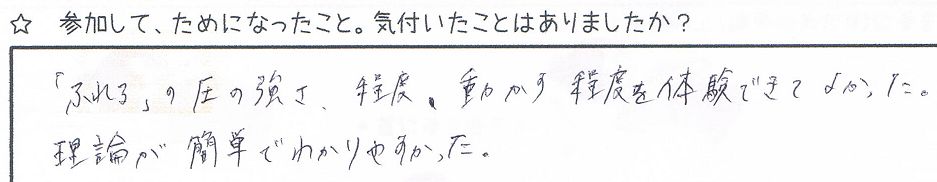 ☆ 参加して、ためになったこと。気付いたことはありましたか？
「ふれる」の圧の強さ、程度、動かす程度を体験できてよかった。
理論が簡単でわかりやすかった。